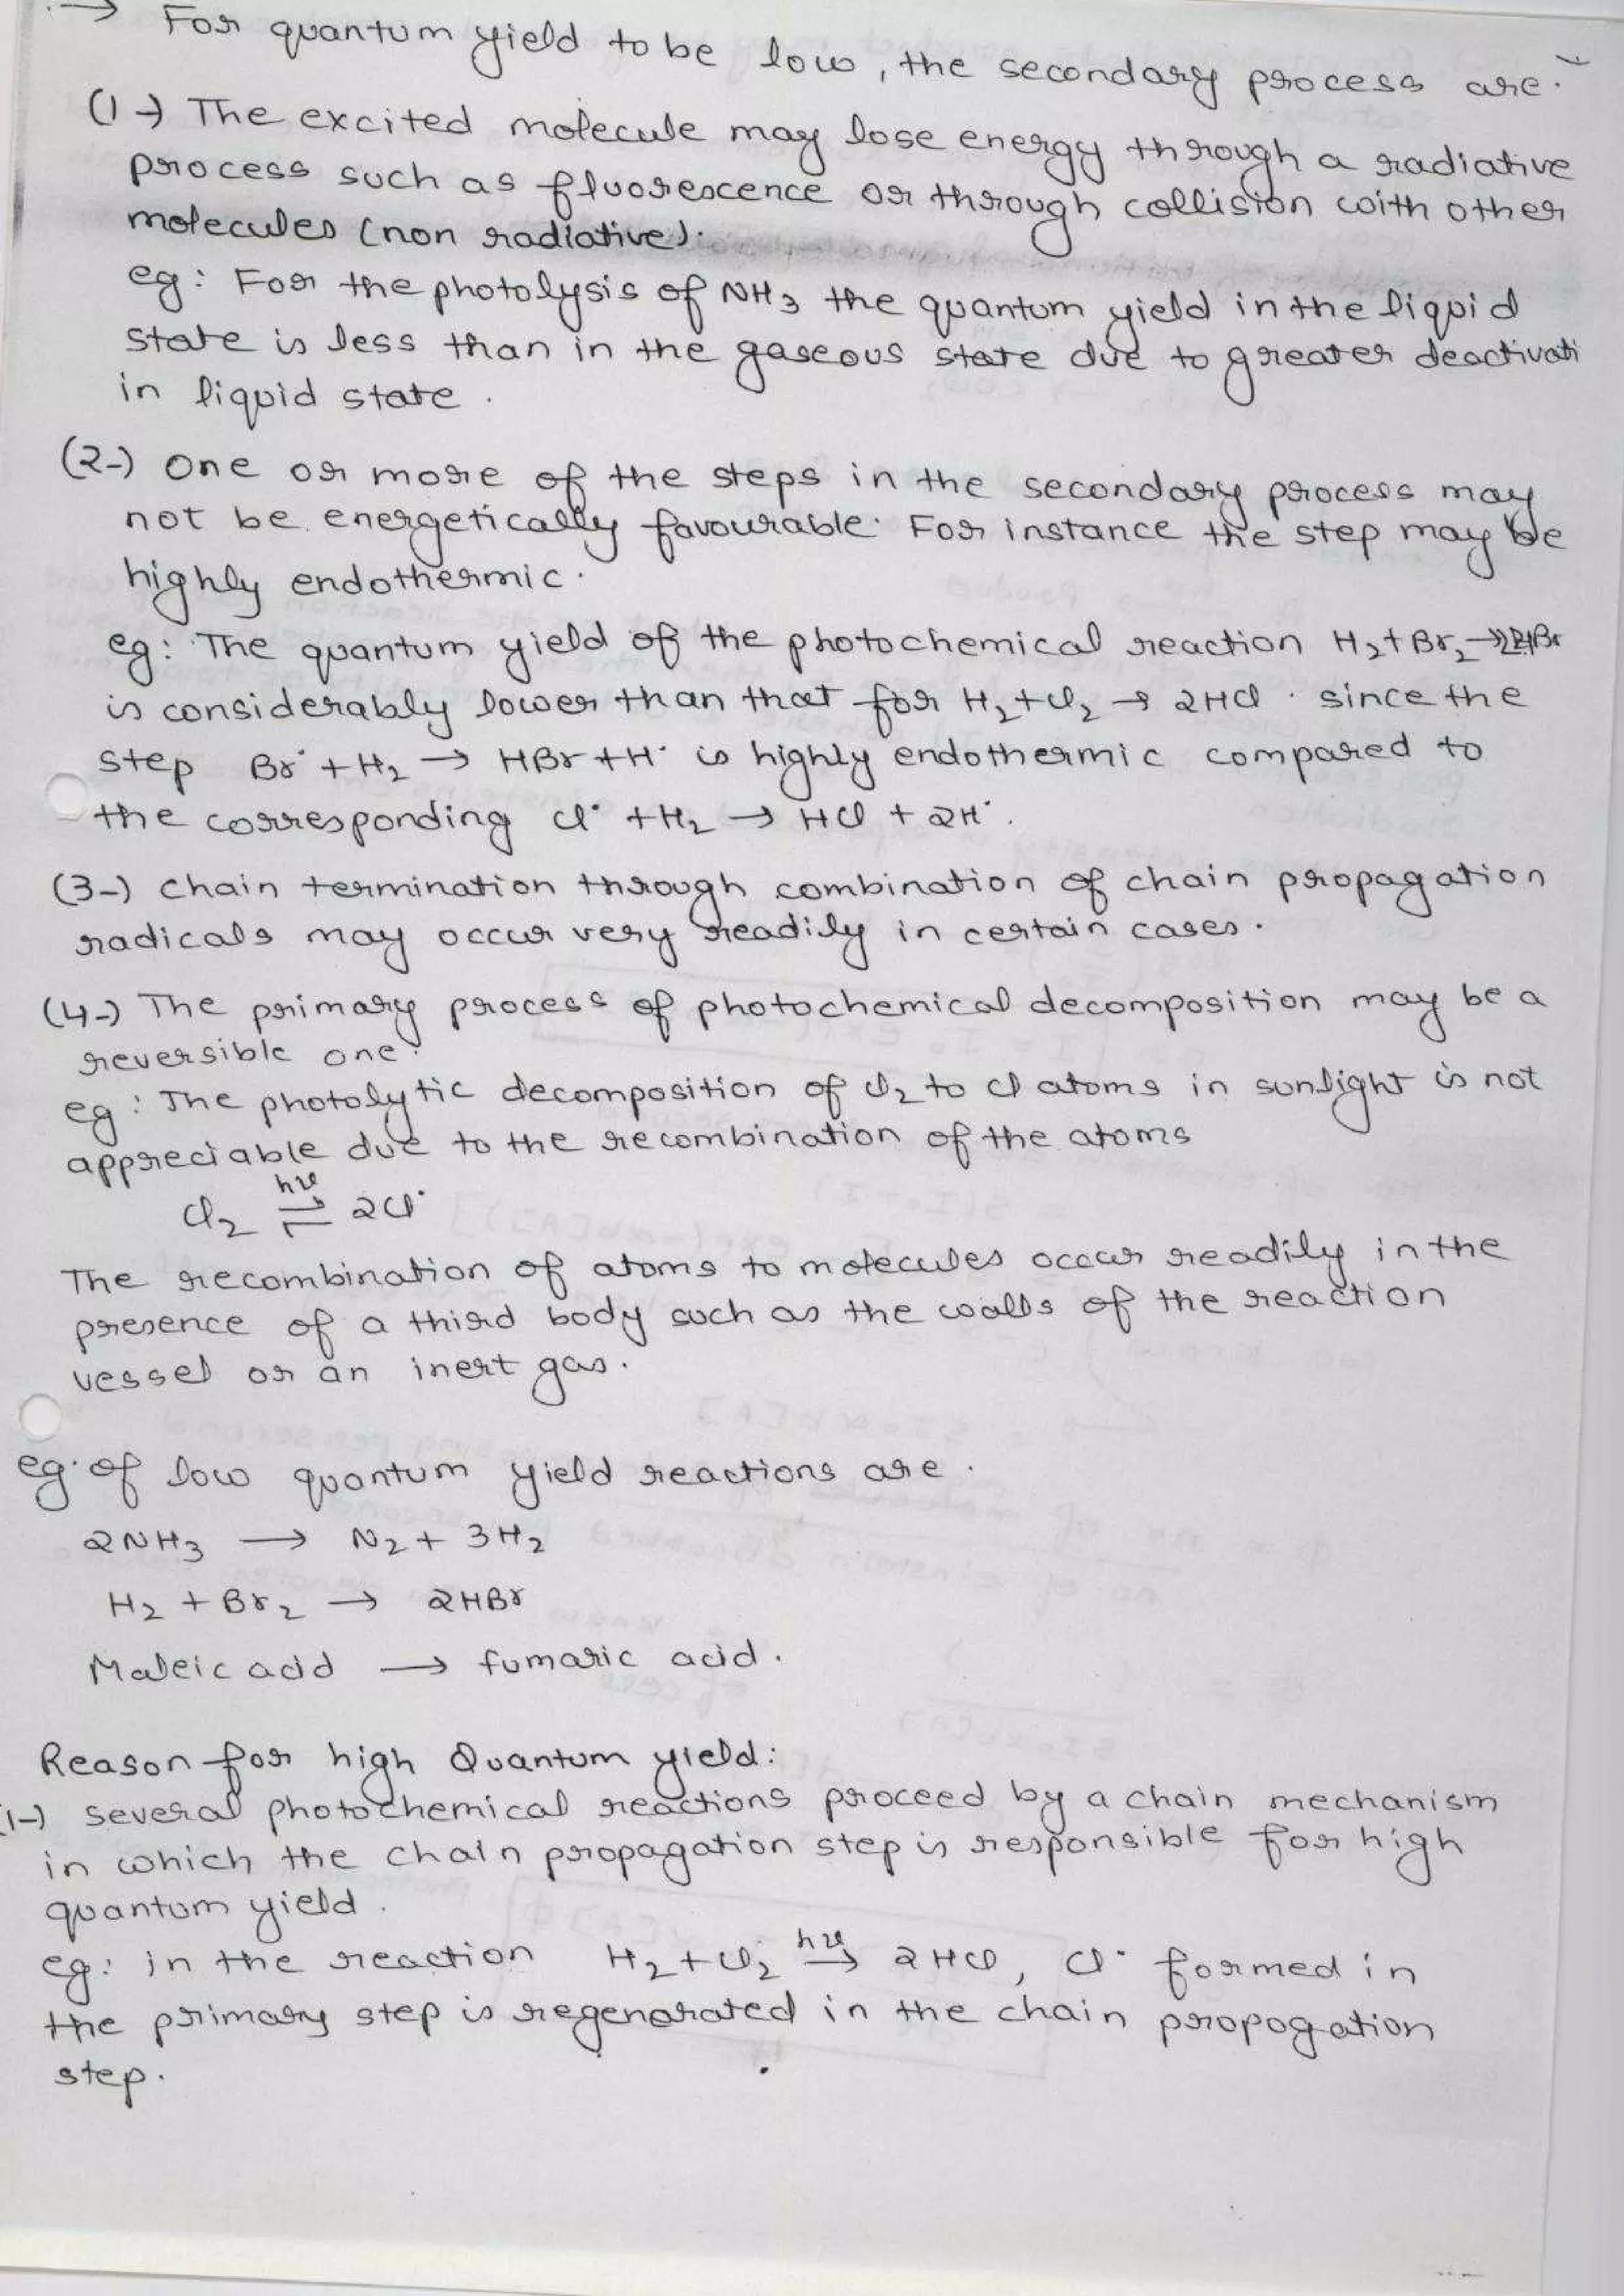 → For quantum yield to be low, the secondary process are :-
(1-) The excited molecule may lose energy through a radiative
process such as fluorescence or through collision with other
molecules (non radiative).
eg: For the photolysis of NH₃ the quantum yield in the liquid
state is less than in the gaseous state due to greater deactivati
in liquid state .
(2-) One or more of the steps in the secondary process may
not be energetically favourable. For instance the step may be
highly endothermic.
eg: The quantum yield of the photochemical reaction H₂+Br₂→2HBr
is considerably lower than that for H₂+Cl₂ → 2HCl . since the
step Br˙ + H₂ → HBr + H˙ is highly endothermic compared to
the corresponding Cl˙ + H₂ → HCl + 2H˙.
(3-) Chain termination through combination of chain propagation
radicals may occur very readily in certain cases.
(4-) The primary process of photochemical decomposition may be a
reversible one.
eg: The photolytic decomposition of Cl₂ to Cl atoms in sunlight is not
appreciable due to the recombination of the atoms
Cl₂ ⇌ hν 2Cl˙
The recombination of atoms to molecules occur readily in the
presence of a third body such as the walls of the reaction
vessel or an inert gas.
eg. of low quantum yield reactions are .
2NH₃ → N₂ + 3H₂
H₂ + Br₂ → 2HBr
Maleic acid → fumaric acid.
Reason for high Quantum yield:
(1-) several photochemical reactions proceed by a chain mechanism
in which the chain propagation step is responsible for high
quantum yield .
eg: in the reaction H₂+Cl₂ hν→ 2HCl, Cl˙ formed in
the primary step is regenerated in the chain propogation
step.